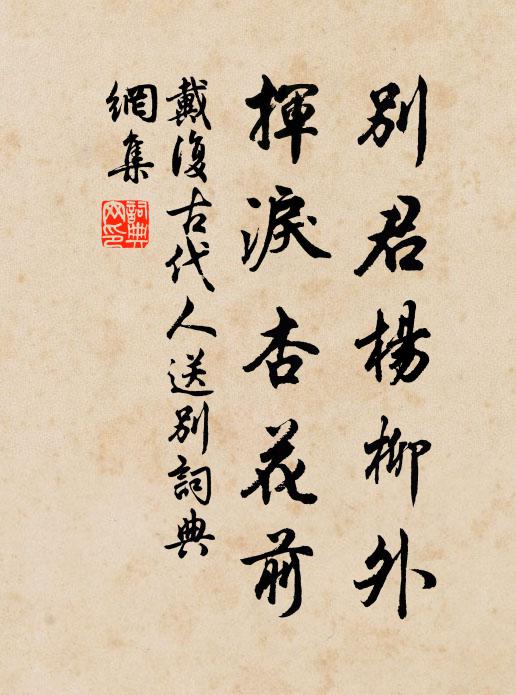 別君楊柳外
揮淚杏花前
戴復古代人送別詞典
網集
詞典
文印